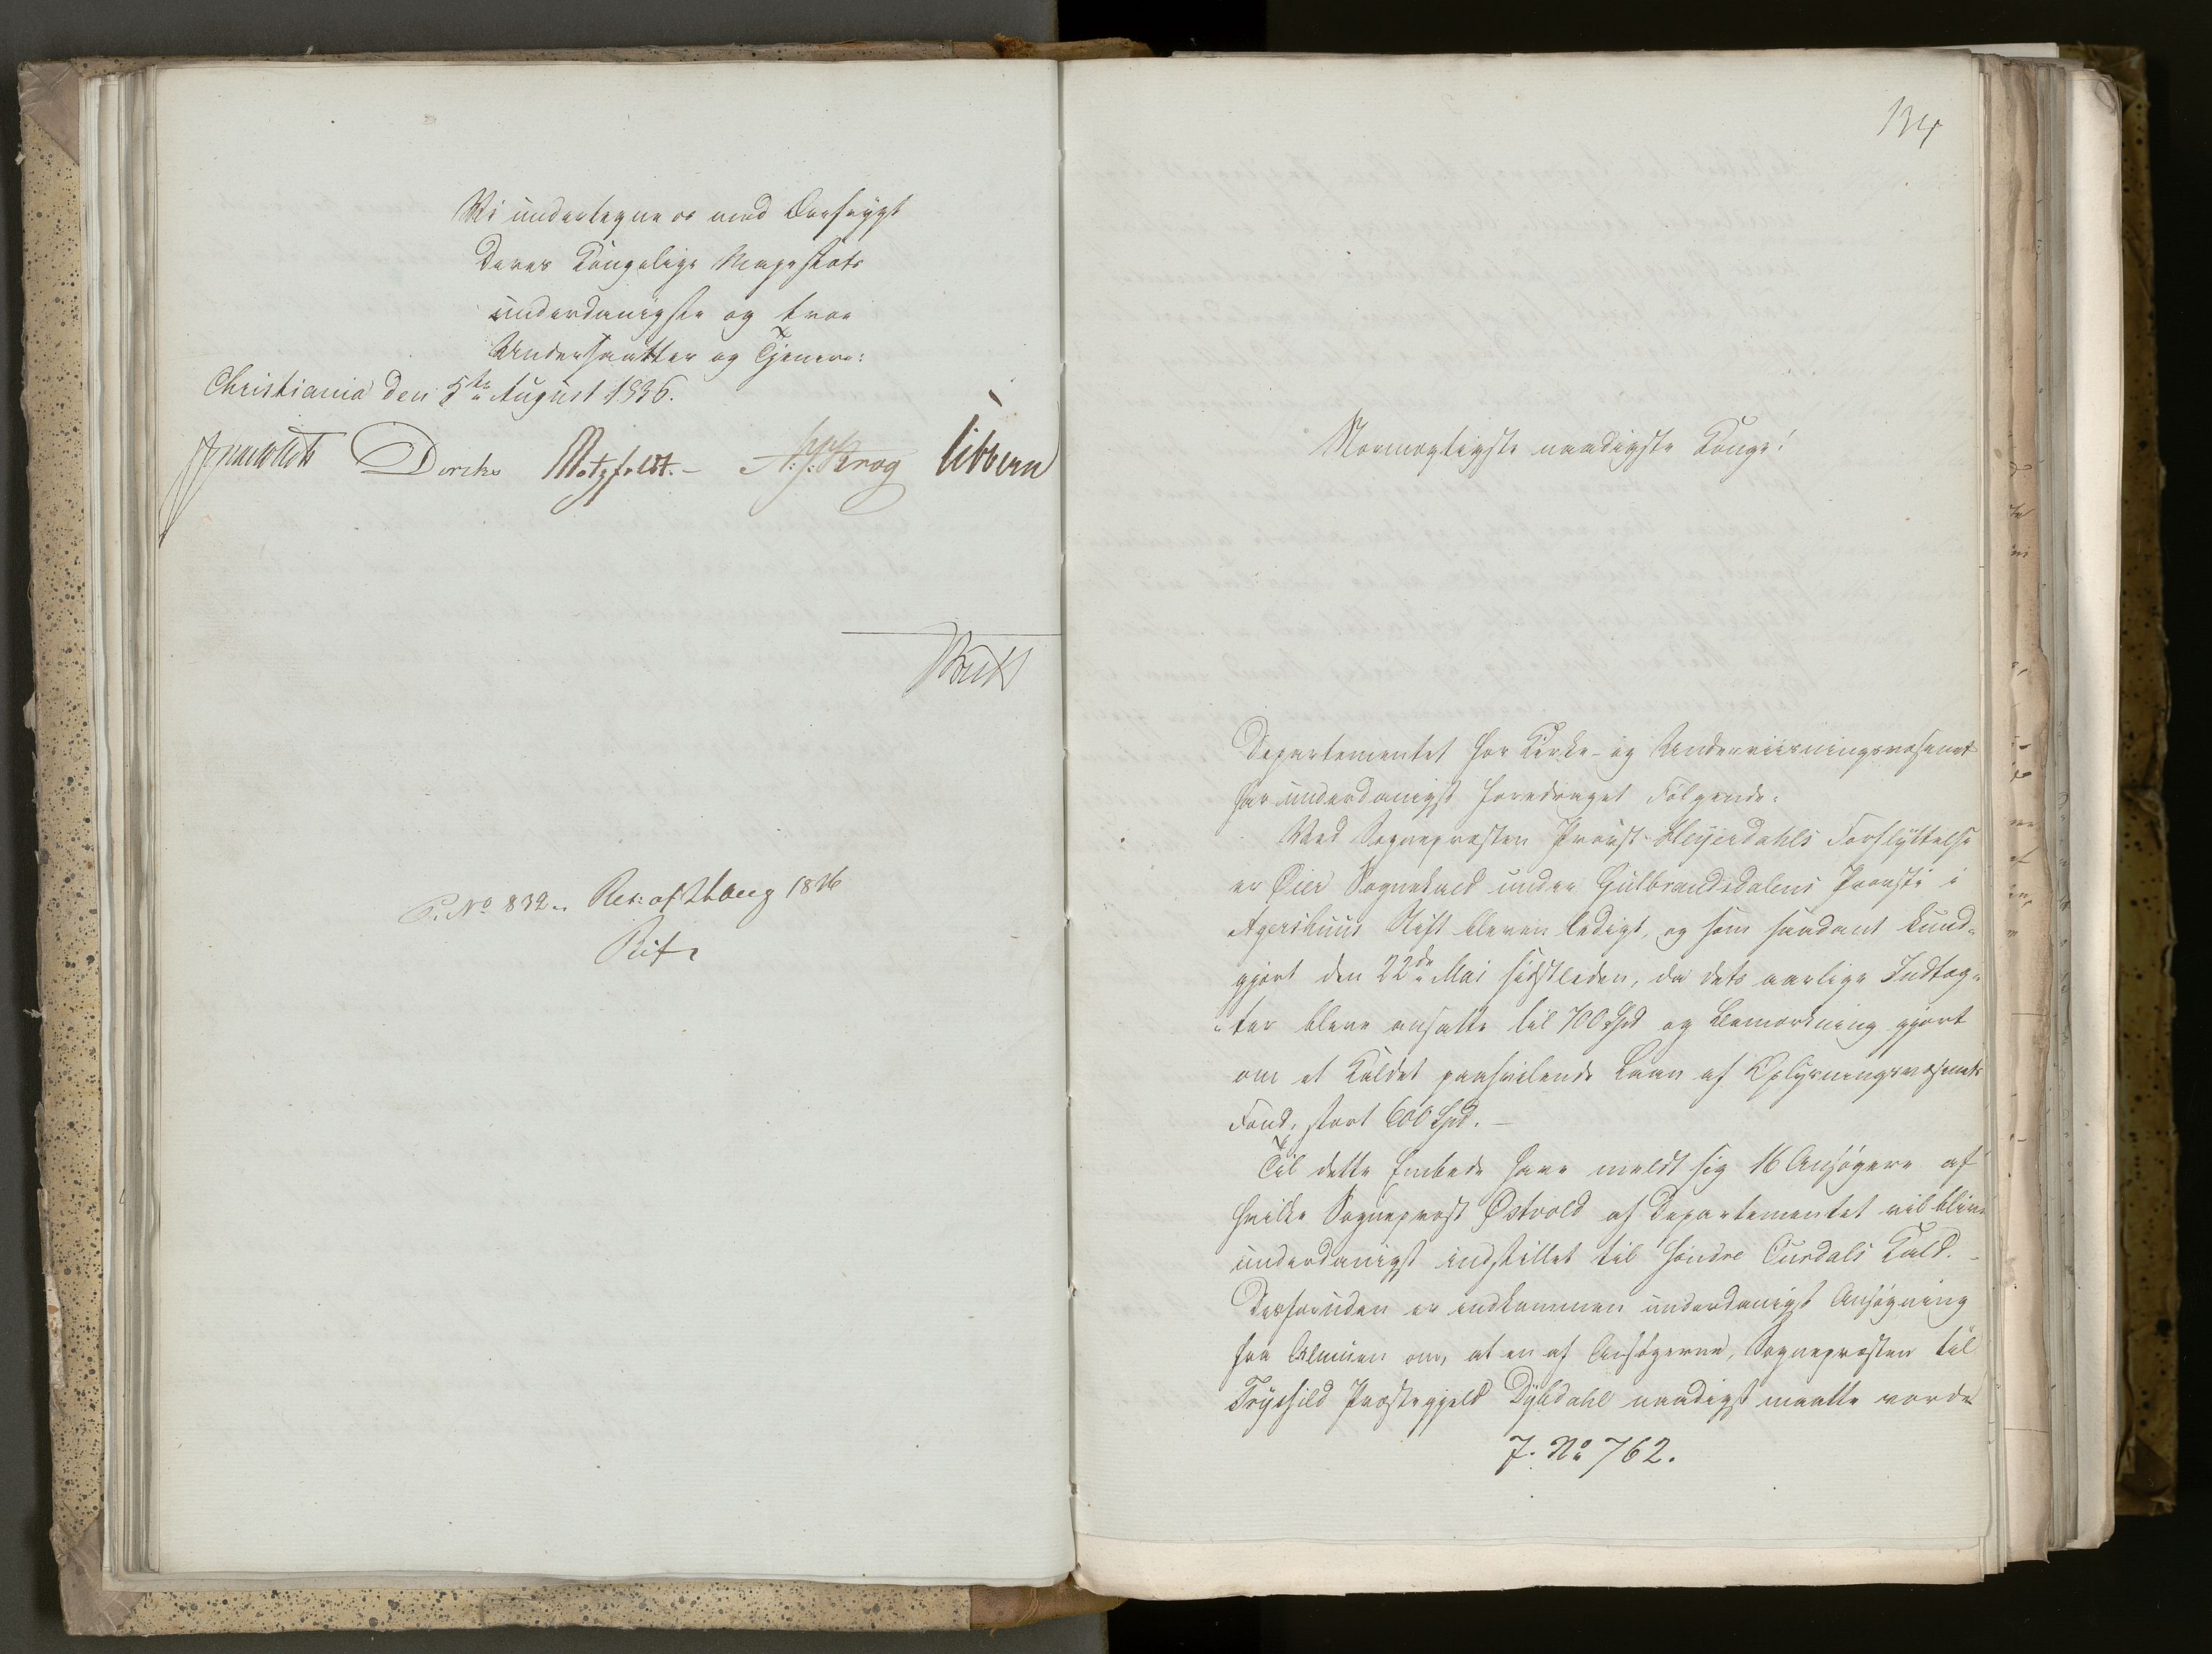 Vi undertegne os med Ærefrygt
Deres Kongelige Majestæts
underdanigste og troe
Undersaatter og Tjenere:
Christiania den 5te August 1836.
Diriks Motzfeldt.- Krog Vibern
P. No 832. Res: af Aug 1836
134
Stormægtigste naadigste Konge!
Departementet for Kirke- og Underviisningsvæsenet
har underdanigst foredraget Følgende:
Ved Sognepræsten Provst Heyerdahls Forflyttelse
er Öier Sognekald under Gulbrandsdalens Provsti i
Agershuus Stift bleven ledigt, og som saadant kund-
gjort den 22de Mai sidstleden, da dets aarlige Indtæg-
ter bleve ansatte til 700 Spd og Bemærkning gjort
om et Kaldet paahvilende Laan af Oplysningsvæsenets
Fond, stort 600 Spd. -
Til dette Embede have meldt sig 16 Ansøgere af
hvilke Sognepræst Östvold af Departementet vil blive
underdanigst indstillet til Söndre Aurdals Kald. -
Desforuden er indkommen underdanigst Ansøgning
fra Almuen om, at en af Ansøgerne, Sognepræsten til
Trysild Præstegjeld Dybdahl naadigst maatte vorde
J. No 762.